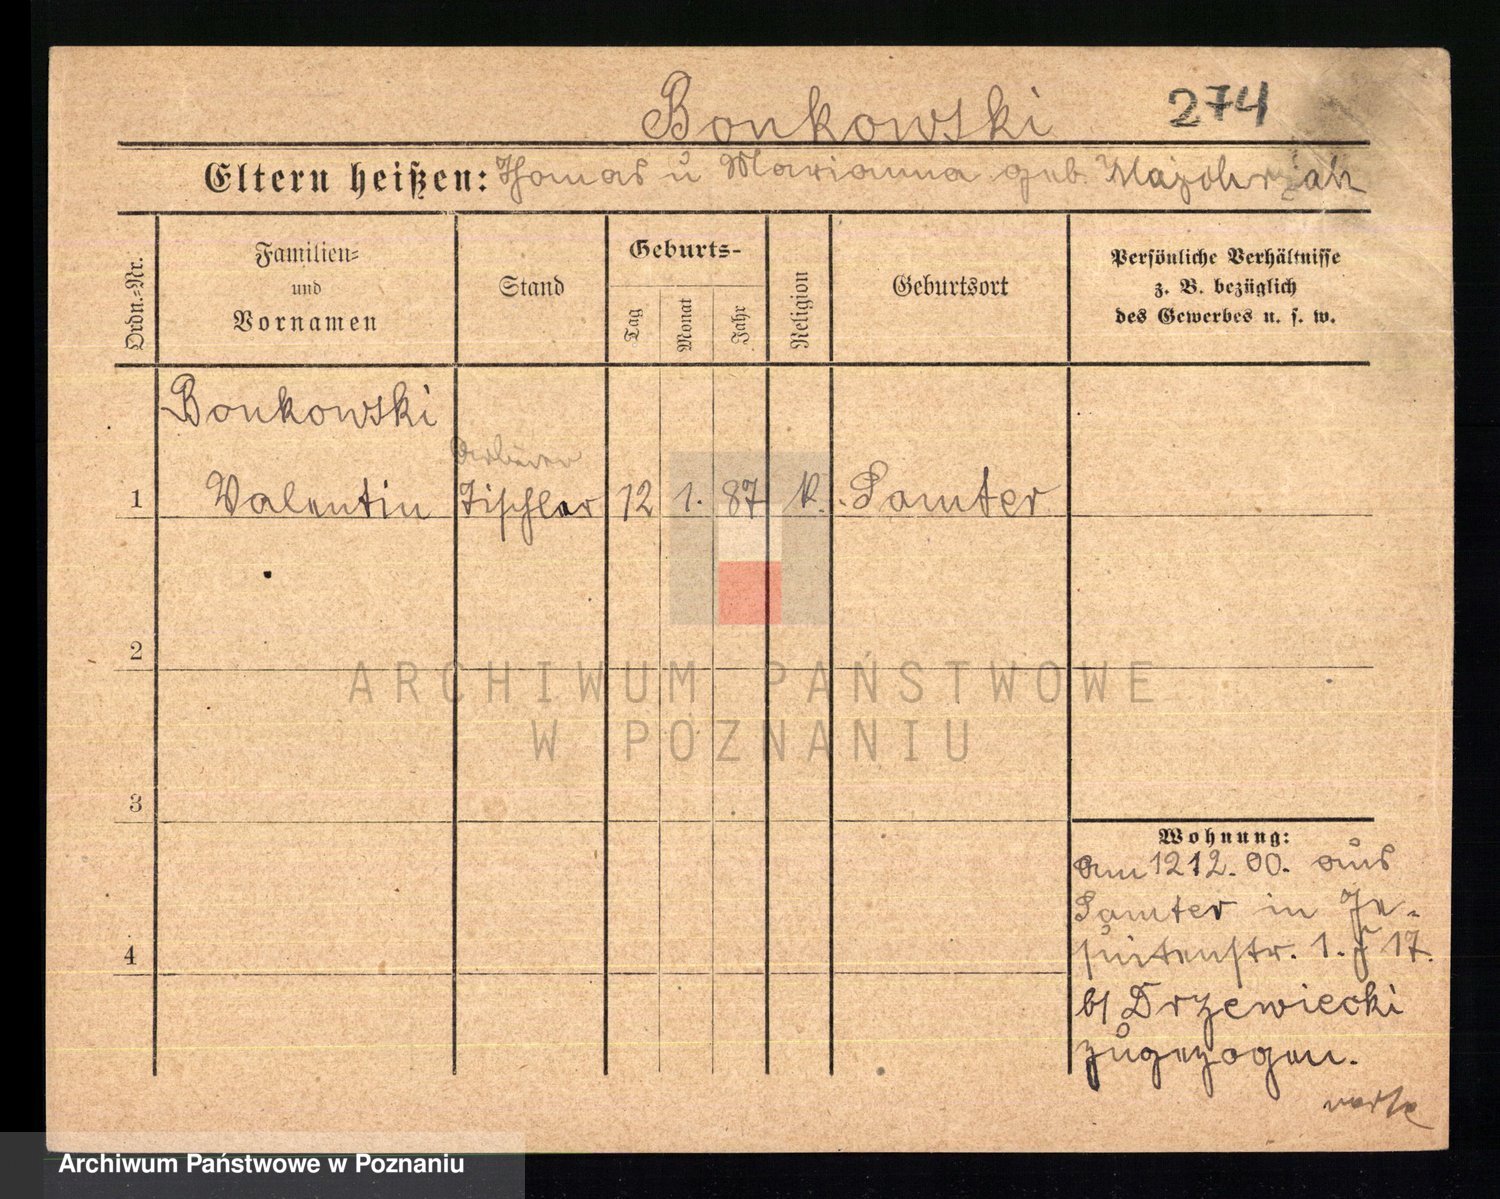 Bonkowski 274
Eltern heißen: Thomas u Marianna geb.
Ordn.-Nr.
Familien-
und
Vornamen
Stand
Geburts-
Tag
Monat
Jahr
Religion
Geburtsort
Persönliche Verhältnisse
z. B. bezüglich
des Gewerbes u. s. w.
Bonkowski
1 Valentin Tischler 12 1. 87 k. Samter
2
3
4
Wohnung:
am 12 12. 00. aus
Samter in Je-
suitenstr. 1. 17.
b/ Drzewiecki
zugezogen.
ARCHIWUM PAŃSTWOWE
W POZNANIU
Archiwum Państwowe w Poznaniu